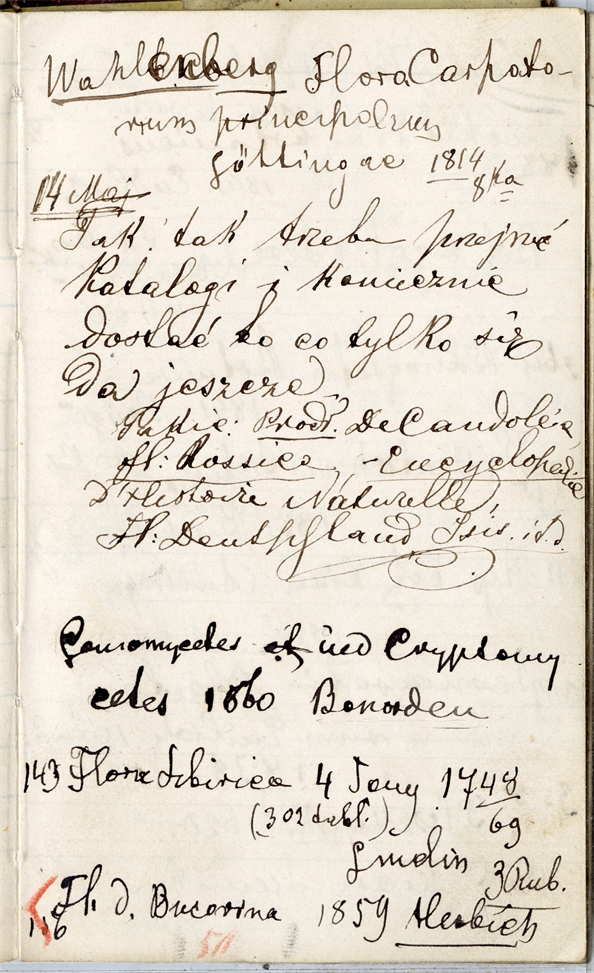 Wahlenberg Flora Carpato-
rum principalium
Göttingae 1814
8va
14 Maj
Tak, tak trzeba przejrzeć
Katalogi i koniecznie
dostać to co tylko się
da jeszcze
Takie: Prodr. DeCandole'a
fl: Rossica, - Encyclopedie
D'Histoire Naturelle,
Fl: Deutschland Isis. i.t.d.
Coniomycetes et und Cryptomy
cetes 1860 Bonorden
143 Flora Sibirica 4 Tomy 1748
(302 tabl.) 69
Gmelin
3 Rub.
Fl. d. Bucovina 1859 Herbich
156